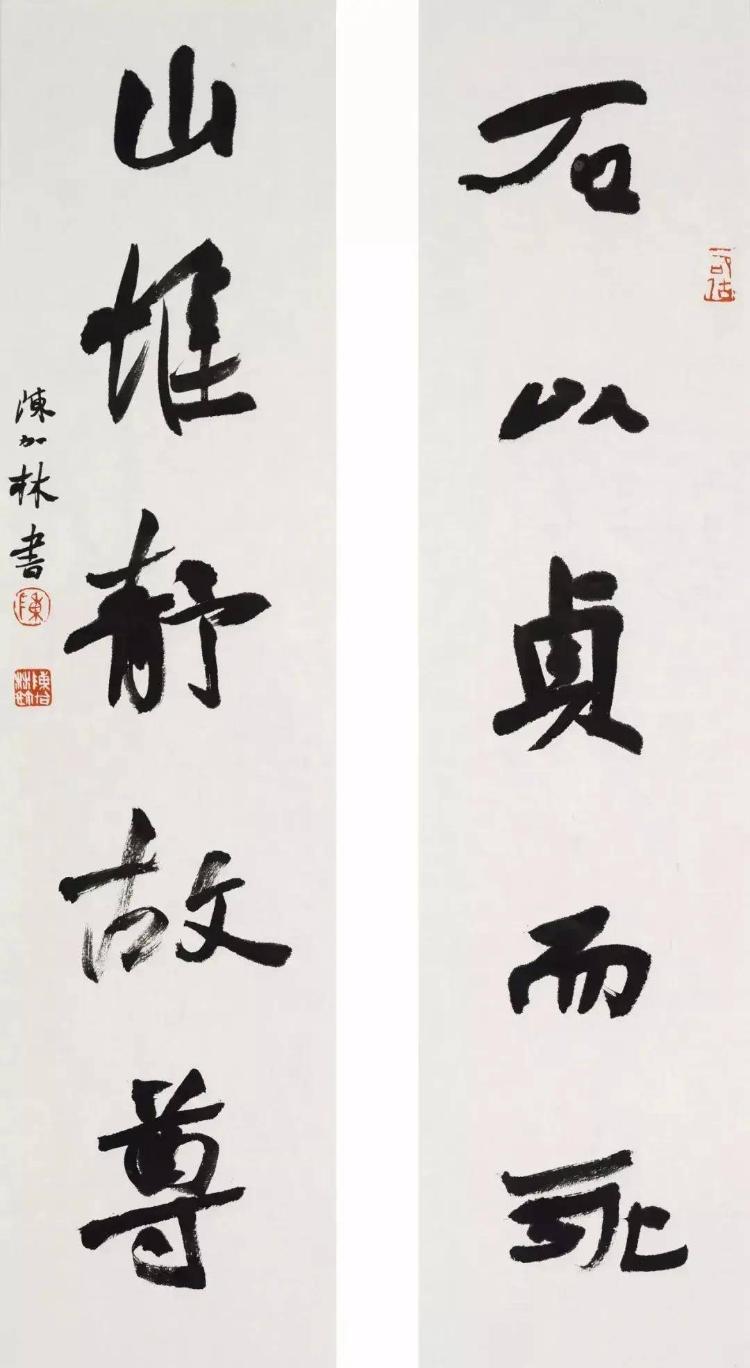 石以貞而死
山惟静故尊
陳加林書
陳